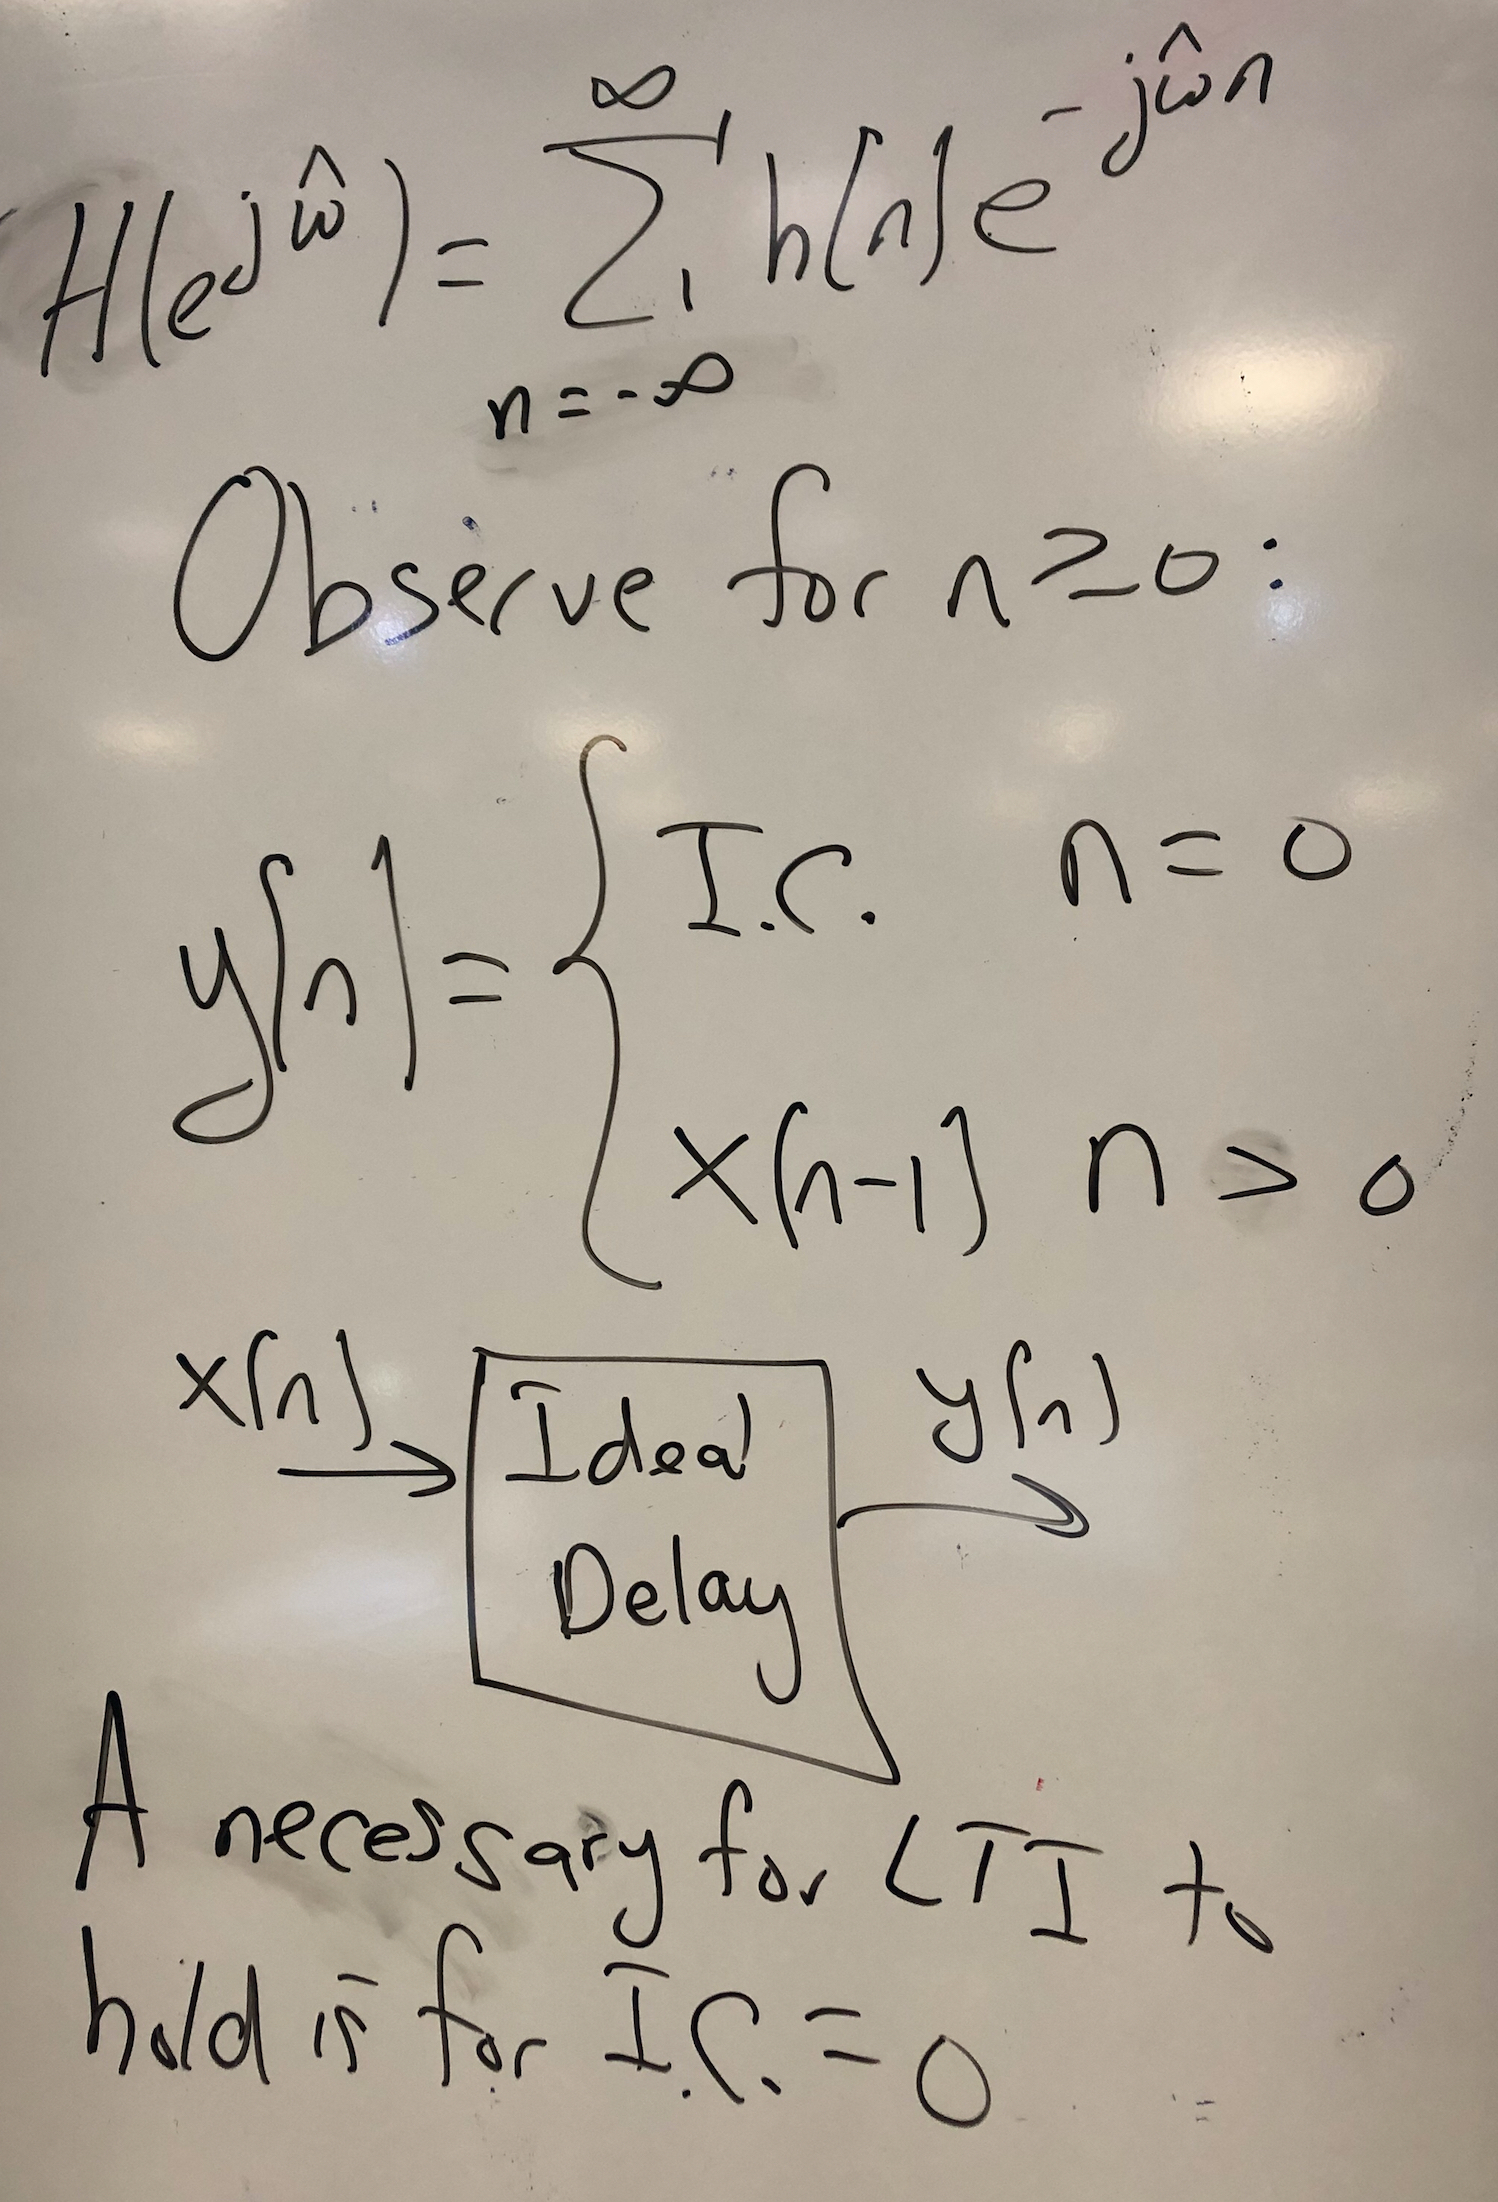 H(e^{jŵ}) = ∑_{n=-∞}^{∞} h[n] e^{-jŵn}
Observe for n ≥ 0:
y[n] = { I.C. n = 0
x[n-1] n > 0
x[n] → Ideal Delay → y[n]
A necessary for LTI to
hold is for I.C. = 0